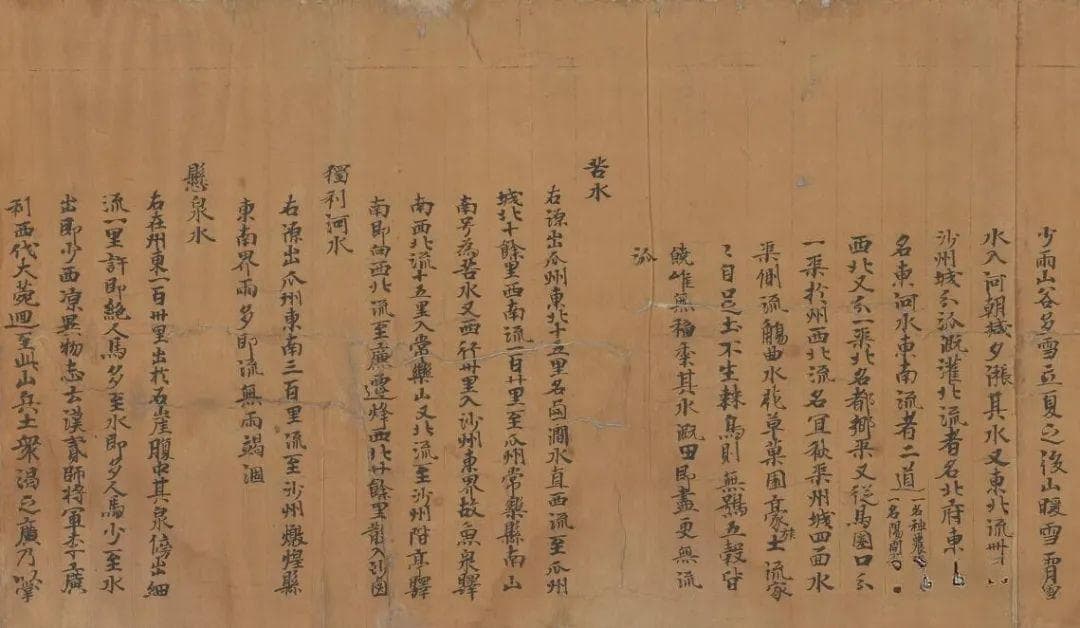 少雨山谷多雪立夏之後山暖雪
水入河朝減夕漲其水又東北流卌
沙州城分派溉灌北流者名北府東
名東河水東南流者二道一名神農
一名陽開
西北又分一渠北名都鄉渠又從馬圈口分
一渠於州西北流名宜秋渠州城四面水
渠側流觴曲水花草菓園豪族士流家
〻自足土不生棘鳥則無鶚五穀皆
饒唯無稻黍其水溉田即盡更無流
派
苦水
右源出瓜州東北十五里名鹵澗水直西流至瓜州
城北十餘里西南流一百廿里至瓜州常樂縣南山
南号為苦水又西行卅里入沙州東界故魚泉驛
南西北流十五里入常樂山又北流至沙州階亭驛
南即向西北流至廉遷烽西北廿餘里散入沙鹵
獨利河水
右源出瓜州東南三百里流至沙州燉煌縣
東南界雨多即流無雨竭涸
懸泉水
右在州東一百卅里出於石崖腹中其泉傍出細
流一里許即絕人馬多至水即多人馬少至水
出即少西涼異物志云漢貳師將軍李廣
利西伐大菀迴至此山兵士衆渴乏廣乃以掌